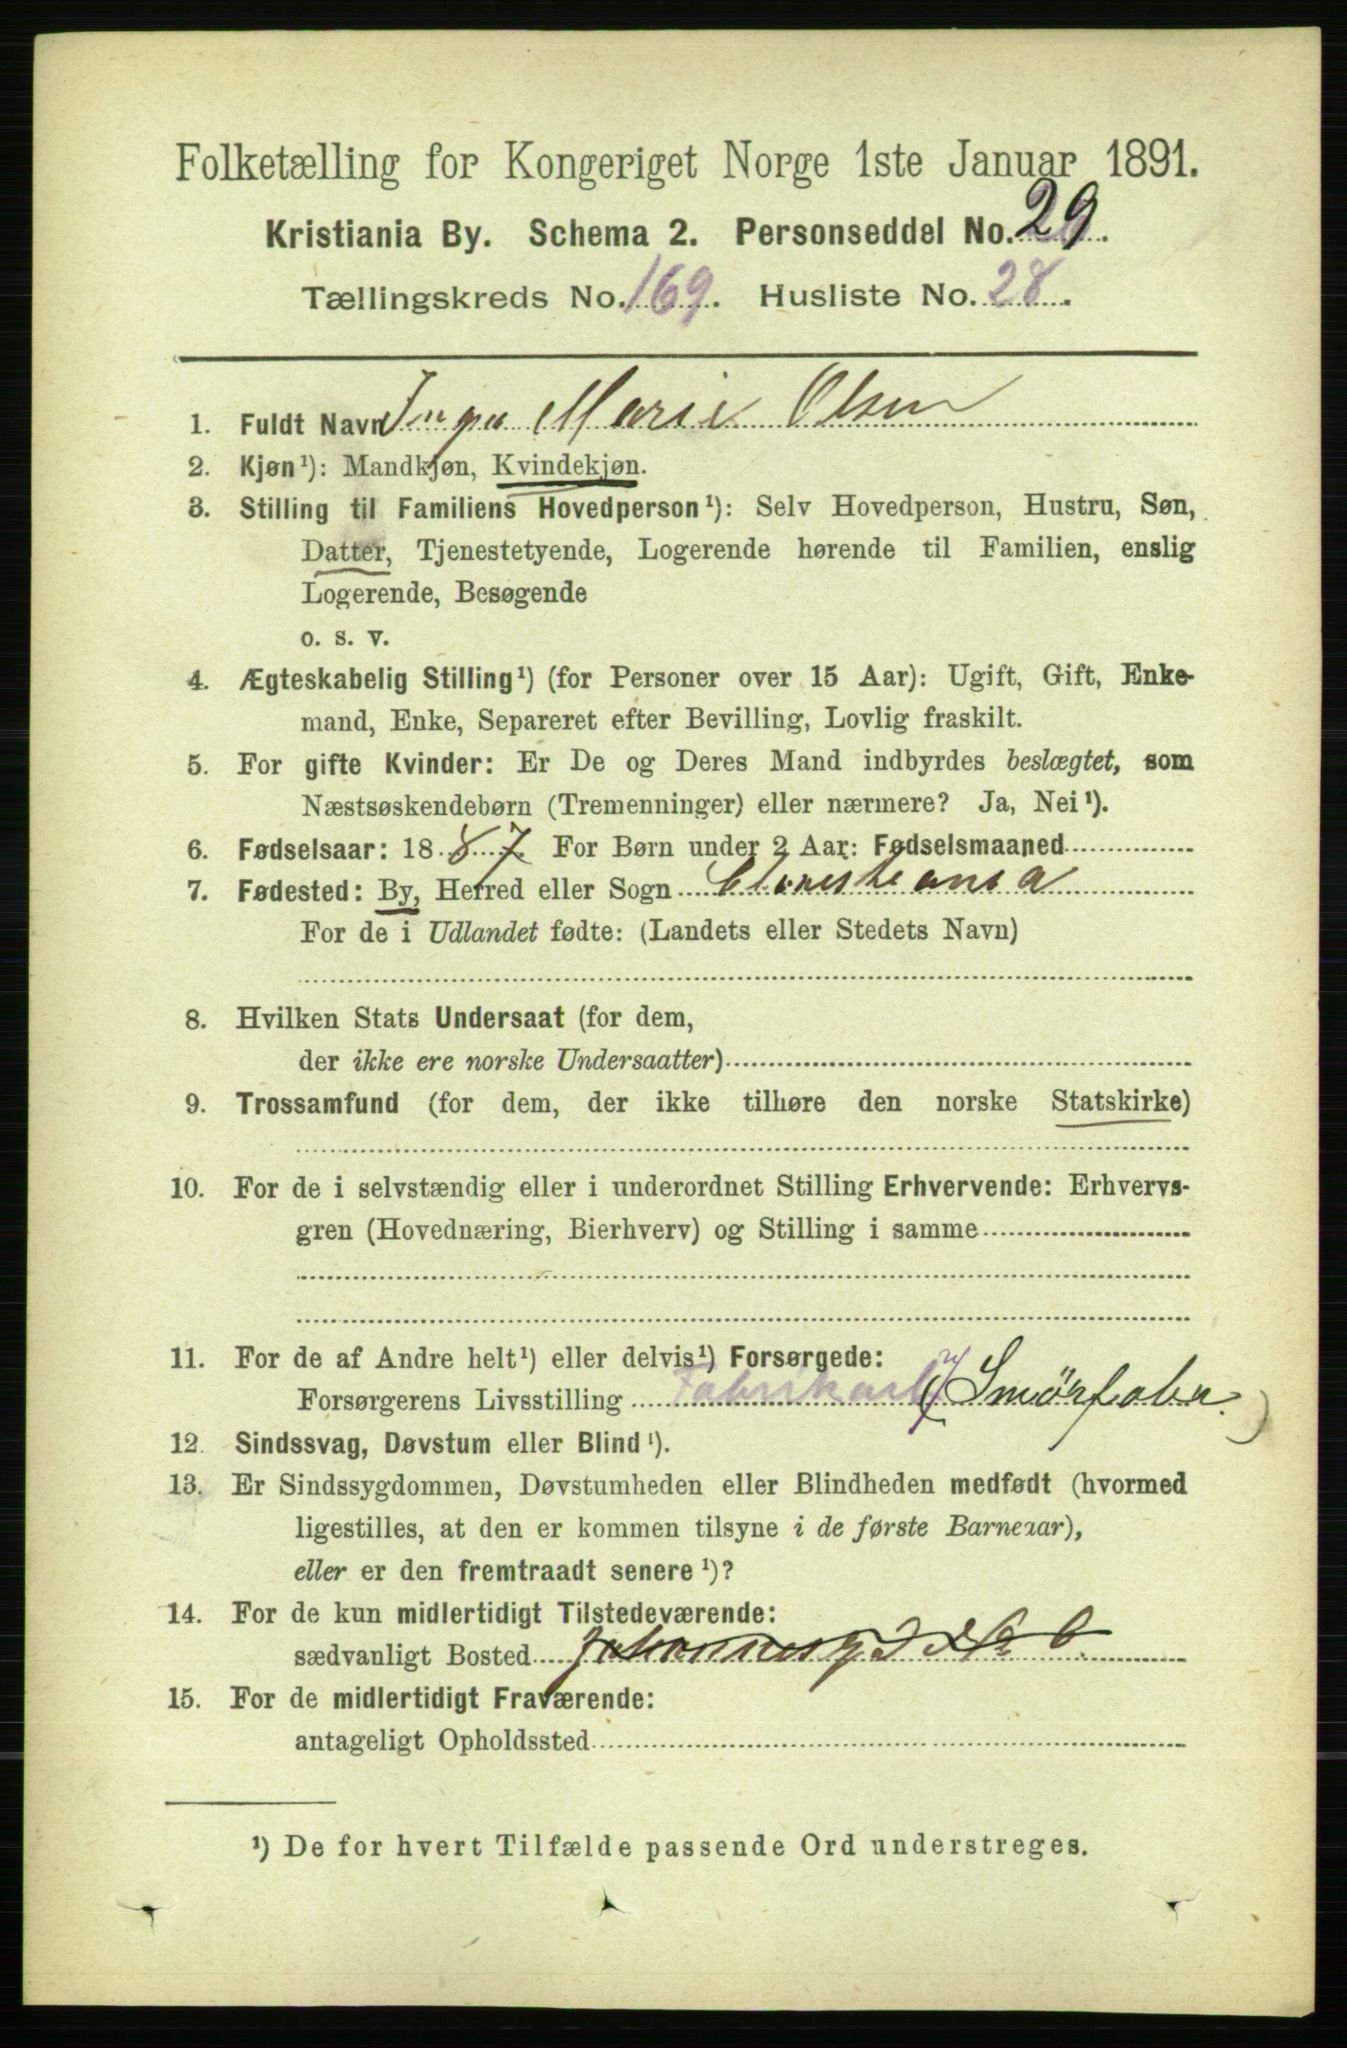 Folketælling for Kongeriget Norge 1ste Januar 1891.
Kristiania By. Schema 2. Personseddel No. 29.
Tællingskreds No. 169. Husliste No. 28.
1. Fuldt Navn Inga Marie Olsen
2. Kjøn¹): Mandkjøn, Kvindekjøn.
3. Stilling til Familiens Hovedperson¹): Selv Hovedperson, Hustru, Søn,
Datter, Tjenestetyende, Logerende hørende til Familien, enslig
Logerende, Besøgende
o. s. v.
4. Ægteskabelig Stilling¹) (for Personer over 15 Aar): Ugift, Gift, Enke-
mand, Enke, Separeret efter Bevilling, Lovlig fraskilt.
5. For gifte Kvinder: Er De og Deres Mand indbyrdes beslægtet, som
Næstsøskendebørn (Tremenninger) eller nærmere? Ja, Nei¹).
6. Fødselsaar: 1887. For Børn under 2 Aar: Fødselsmaaned
7. Fødested: By, Herred eller Sogn Christiania
For de i Udlandet fødte: (Landets eller Stedets Navn)
8. Hvilken Stats Undersaat (for dem,
der ikke ere norske Undersaatter)
9. Trossamfund (for dem, der ikke tilhøre den norske Statskirke)
10. For de i selvstændig eller i underordnet Stilling Erhvervende: Erhvervs-
gren (Hovednæring, Bierhverv) og Stilling i samme
11. For de af Andre helt¹) eller delvis¹) Forsørgede:
Forsørgerens Livsstilling Fabrikarb (Smørfabr.)
12. Sindssvag, Døvstum eller Blind¹).
13. Er Sindssygdommen, Døvstumheden eller Blindheden medfødt (hvormed
ligestilles, at den er kommen tilsyne i de første Barneaar),
eller er den fremtraadt senere¹)?
14. For de kun midlertidigt Tilstedeværende:
sædvanligt Bosted Johannesgd No 6
15. For de midlertidigt Fraværende:
antageligt Opholdssted
¹) De for hvert Tilfælde passende Ord understreges.